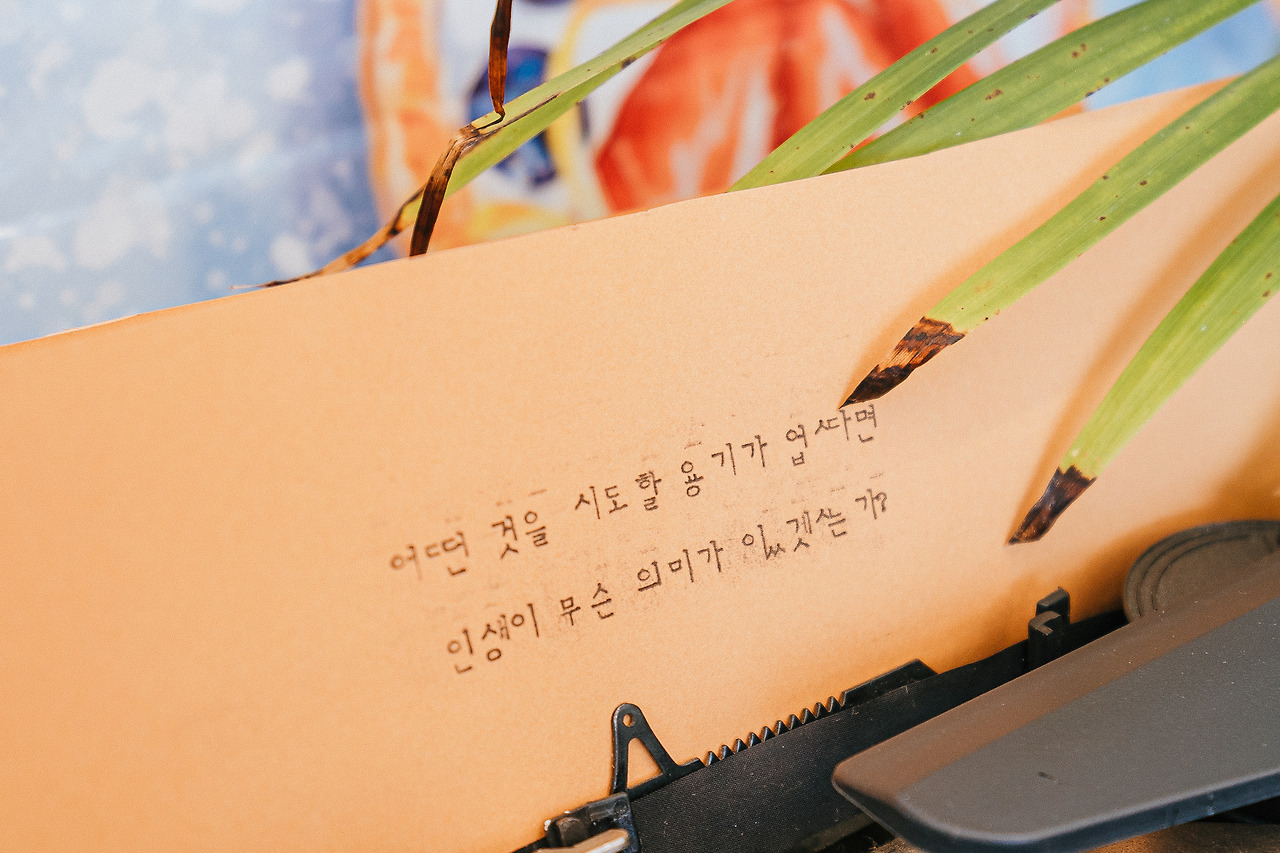 어떤 것을 시도할 용기가 업싸면
인생이 무슨 의미가 있겟는가?